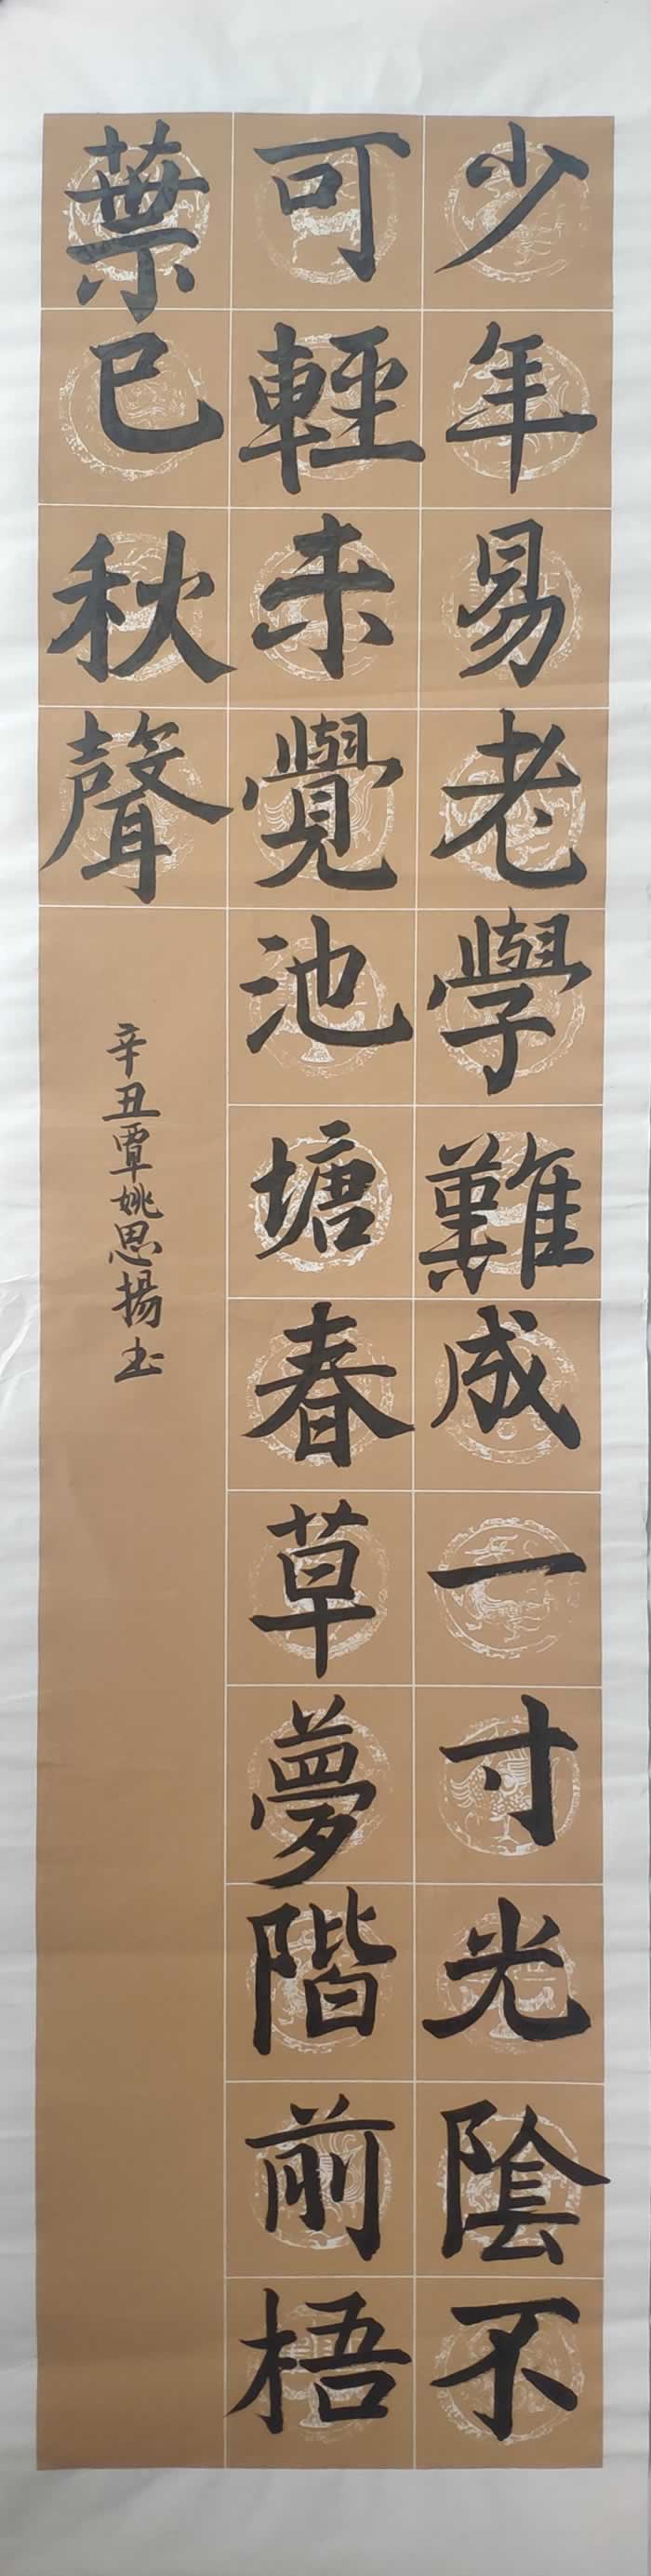 少年易老學難成一寸光陰不
可輕未覺池塘春草夢階前梧
葉已秋聲
辛丑覃姚思揚书